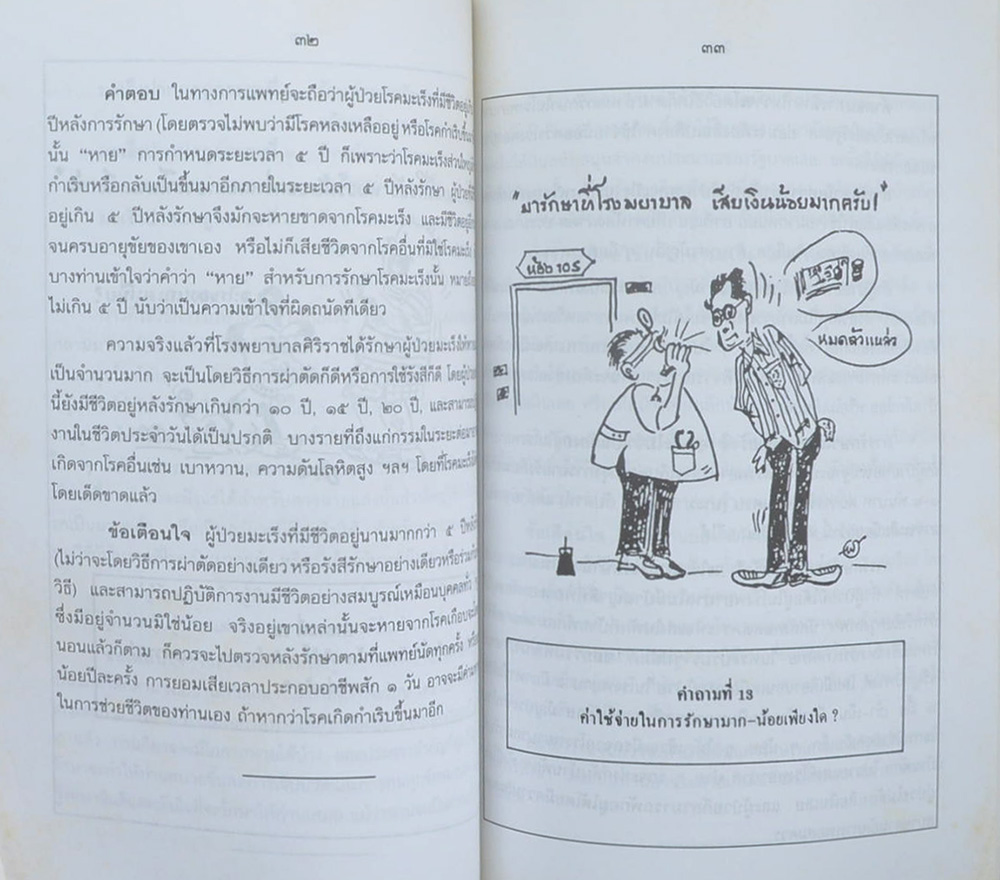 ๓๒
คำตอบ ในทางการแพทย์จะถือว่าผู้ป่วยโรคมะเร็งที่มีชีวิตอยู่
ปีหลังการรักษา (โดยตรวจไม่พบว่ามีโรคหลงเหลืออยู่ หรือโรคกำเริบขึ้น
นั้น “หาย” การกำหนดระยะเวลา ๕ ปี ก็เพราะว่าโรคมะเร็งส่วนใหญ่
กำเริบหรือกลับเป็นขึ้นมาอีกภายในระยะเวลา ๕ ปีหลังรักษา
อยู่เกิน ๕ ปีหลังรักษาจึงมักจะหายขาดจากโรคมะเร็ง และมีชีวิต
จนครบอายุขัยของเขาเอง หรือไม่ก็เสียชีวิตจากโรคอื่นที่มิใช่โรคมะเร็ง
บางท่านเข้าใจว่าคำว่า “หาย” สำหรับการรักษาโรคมะเร็งนั้น
ไม่เกิน ๕ ปี นับว่าเป็นความเข้าใจที่ผิดถนัดทีเดียว
ความจริงแล้วที่โรงพยาบาลศิริราชได้รักษาผู้ป่วยมะเร็ง
เป็นจำนวนมาก จะเป็นโดยวิธีการผ่าตัดก็ดีหรือการใช้รังสีก็ดี โดยผู้ป่วย
นี้ยังมีชีวิตอยู่หลังรักษาเกินกว่า ๑๐ ปี, ๑๕ ปี, ๒๐ ปี, และสามารถ
งานในชีวิตประจำวันได้เป็นปรกติ บางรายที่ถึงแก่กรรมในระยะต่อมา
เกิดจากโรคอื่นเช่น เบาหวาน, ความดันโลหิตสูง ฯลฯ โดยที่โรคมะเร็ง
โดยเด็ดขาดแล้ว
ข้อเตือนใจ ผู้ป่วยมะเร็งที่มีชีวิตอยู่นานมากกว่า ๕ ปี
(ไม่ว่าจะโดยวิธีการผ่าตัดอย่างเดียว หรือรังสีรักษาอย่างเดียวหรือร่วม
วิธี) และสามารถปฏิบัติการงานมีชีวิตอย่างสมบูรณ์เหมือนบุคคลทั่ว
ซึ่งมีอยู่จำนวนมิใช่น้อย จริงอยู่เขาเหล่านั้นจะหายจากโรคเกือบจะ
นอนแล้วก็ตาม ก็ควรจะไปตรวจหลังรักษาตามที่แพทย์นัดทุกครั้ง
น้อยปีละครั้ง การยอมเสียเวลาประกอบอาชีพสัก ๑ วัน อาจจะมี
ในการช่วยชีวิตของท่านเอง ถ้าหากว่าโรคเกิดกำเริบขึ้นมาอีก
๓๓
"มารักษาที่โรงพยาบาล เสียเงินน้อยมากครับ!"
ห้อง 105
หมดตัวแหล่ว
คำถามที่ 13
ค่าใช้จ่ายในการรักษามาก-น้อยเพียงใด ?